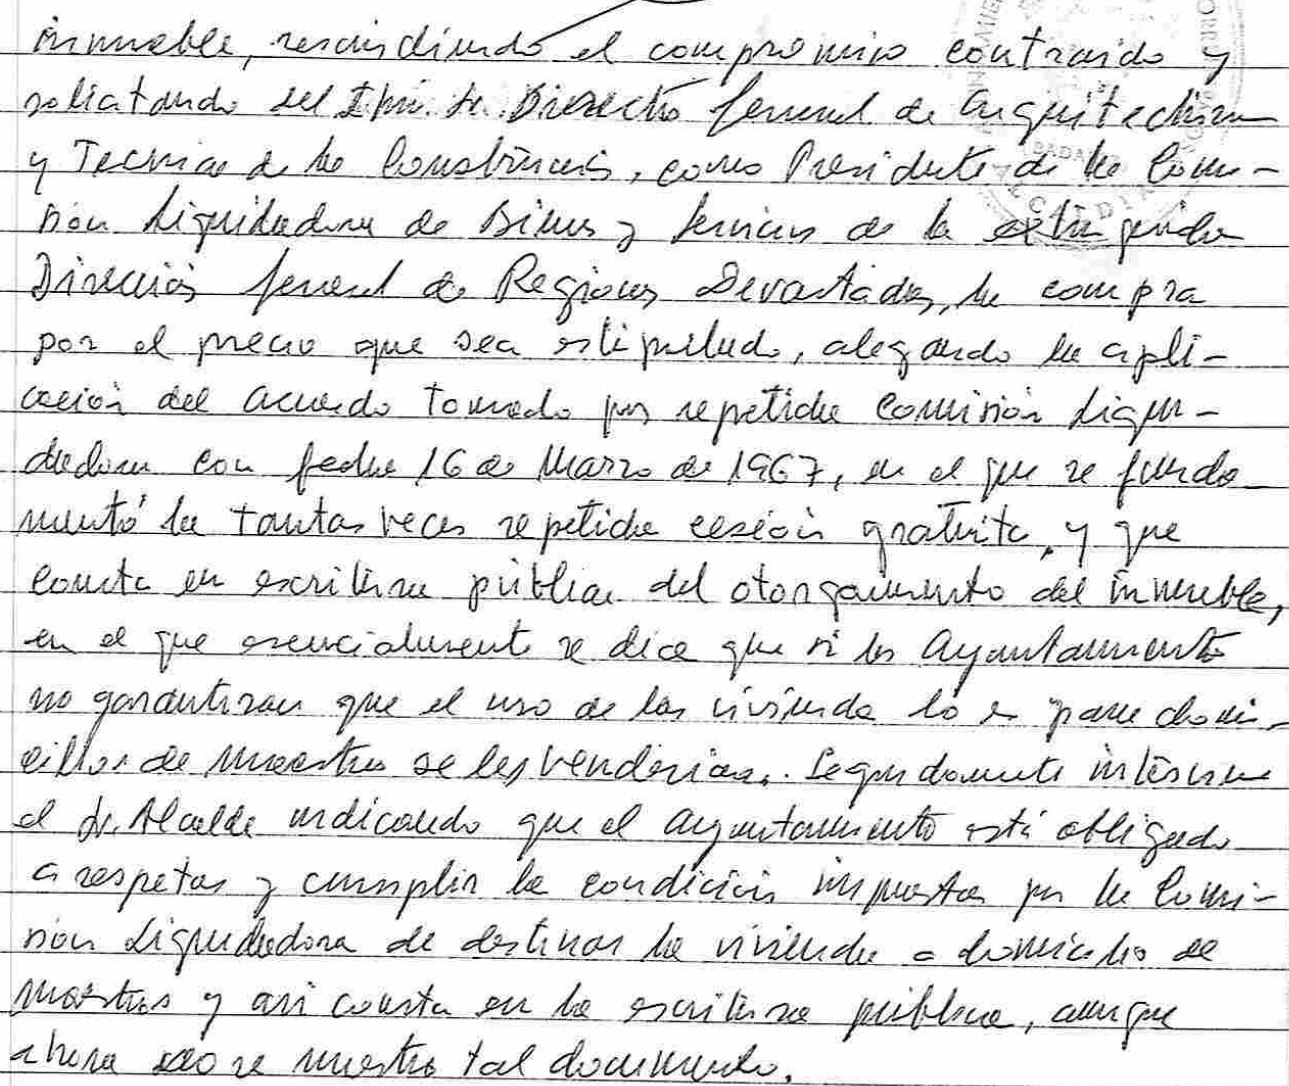 inmueble, rescindiendo el compromiso contraido y
solicitando del Ilmo. Sr. Director General de Arquitectura
y Tecnica de la Construcción, como Presidente de la Comi-
sión Liquidadora de Bienes y Servicios de la extinguida
Dirección General de Regiones Devastadas, la compra
por el precio que sea estipulado, alegando la apli-
cación del acuerdo tomado por repetida Comisión Liqui-
dadora con fecha 16 de Marzo de 1967, en el que se funda-
mentó la tantas veces repetida cesión gratuita, y que
consta en escritura pública del otorgamiento del inmueble,
en el que esencialmente se dice que si los Ayuntamiento
no garantizan que el uso de las vivienda lo es para domi-
cilios de Maestros se les venderian. Segundamente interviene
el Sr. Alcalde indicando que el Ayuntamiento está obligado
a respetar y cumplir la condición impuesta por la Comi-
sión Liquidadora de destinar la vivienda a domicilio de
Maestros y asi consta en la escritura pública, aunque
ahora no se muestra tal documento.
BADA
ALCALDIA